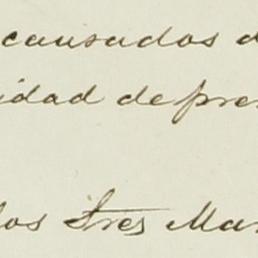 causados d
idad de pre
los Tres Mar